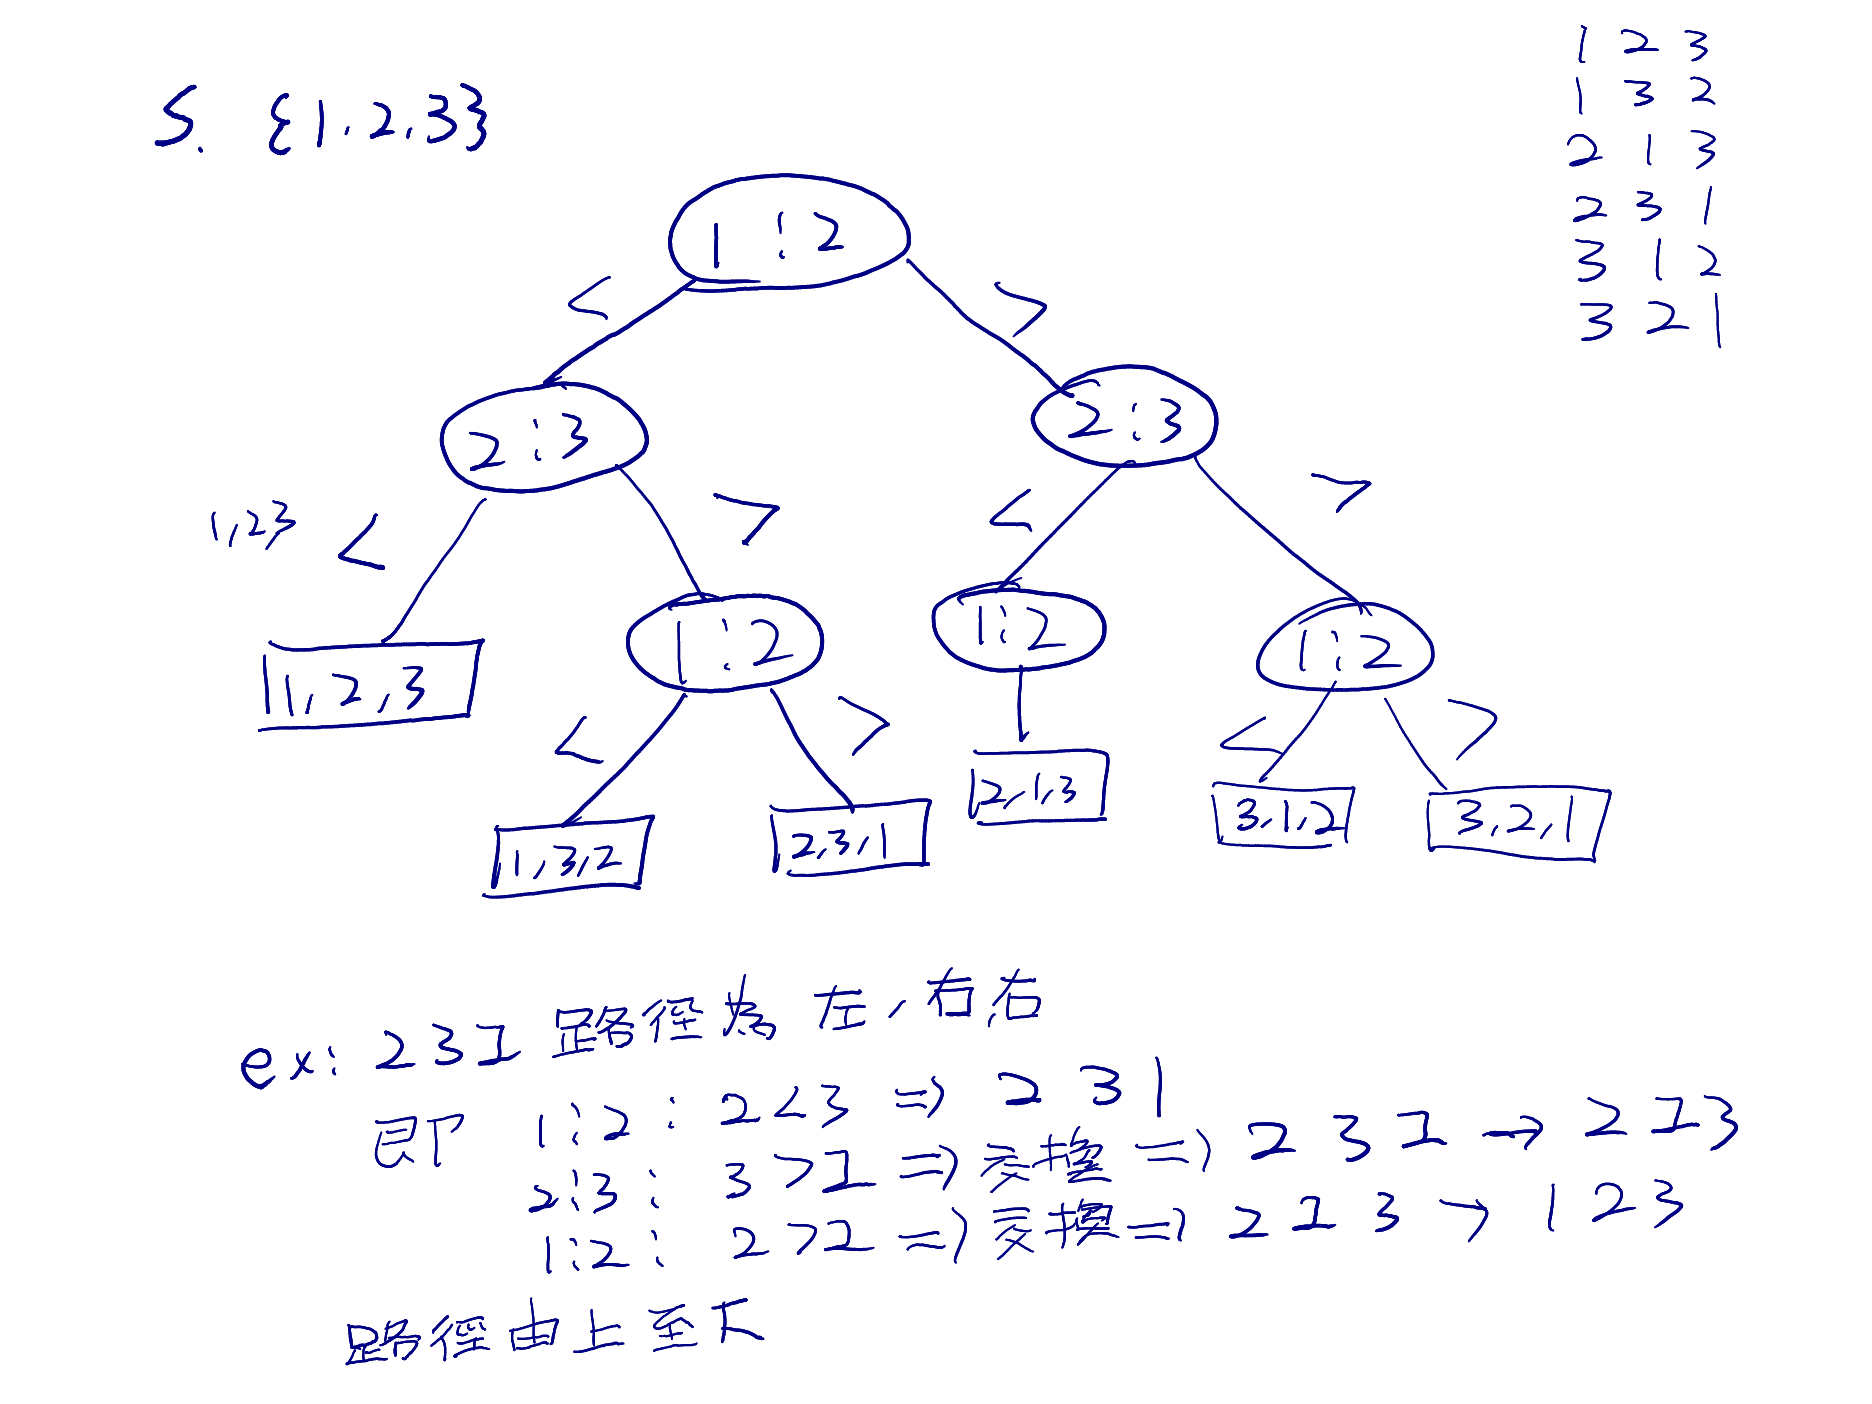 5. {1,2,3}
1 2 3
1 3 2
2 1 3
2 3 1
3 1 2
3 2 1
1:2
< >
2:3 2:3
1,2,3 < > < >
1,2,3 1:2 1:2 1:2
< > < >
1,3,2 2,3,1 2,1,3 3,1,2 3,2,1
ex: 2 3 1 路徑為 左,右,右
即 1:2 : 2<3 => 2 3 1
2:3 : 3>1 => 交換 => 2 3 1 → 2 1 3
1:2 : 2>1 => 交換 => 2 1 3 → 1 2 3
路徑由上至下